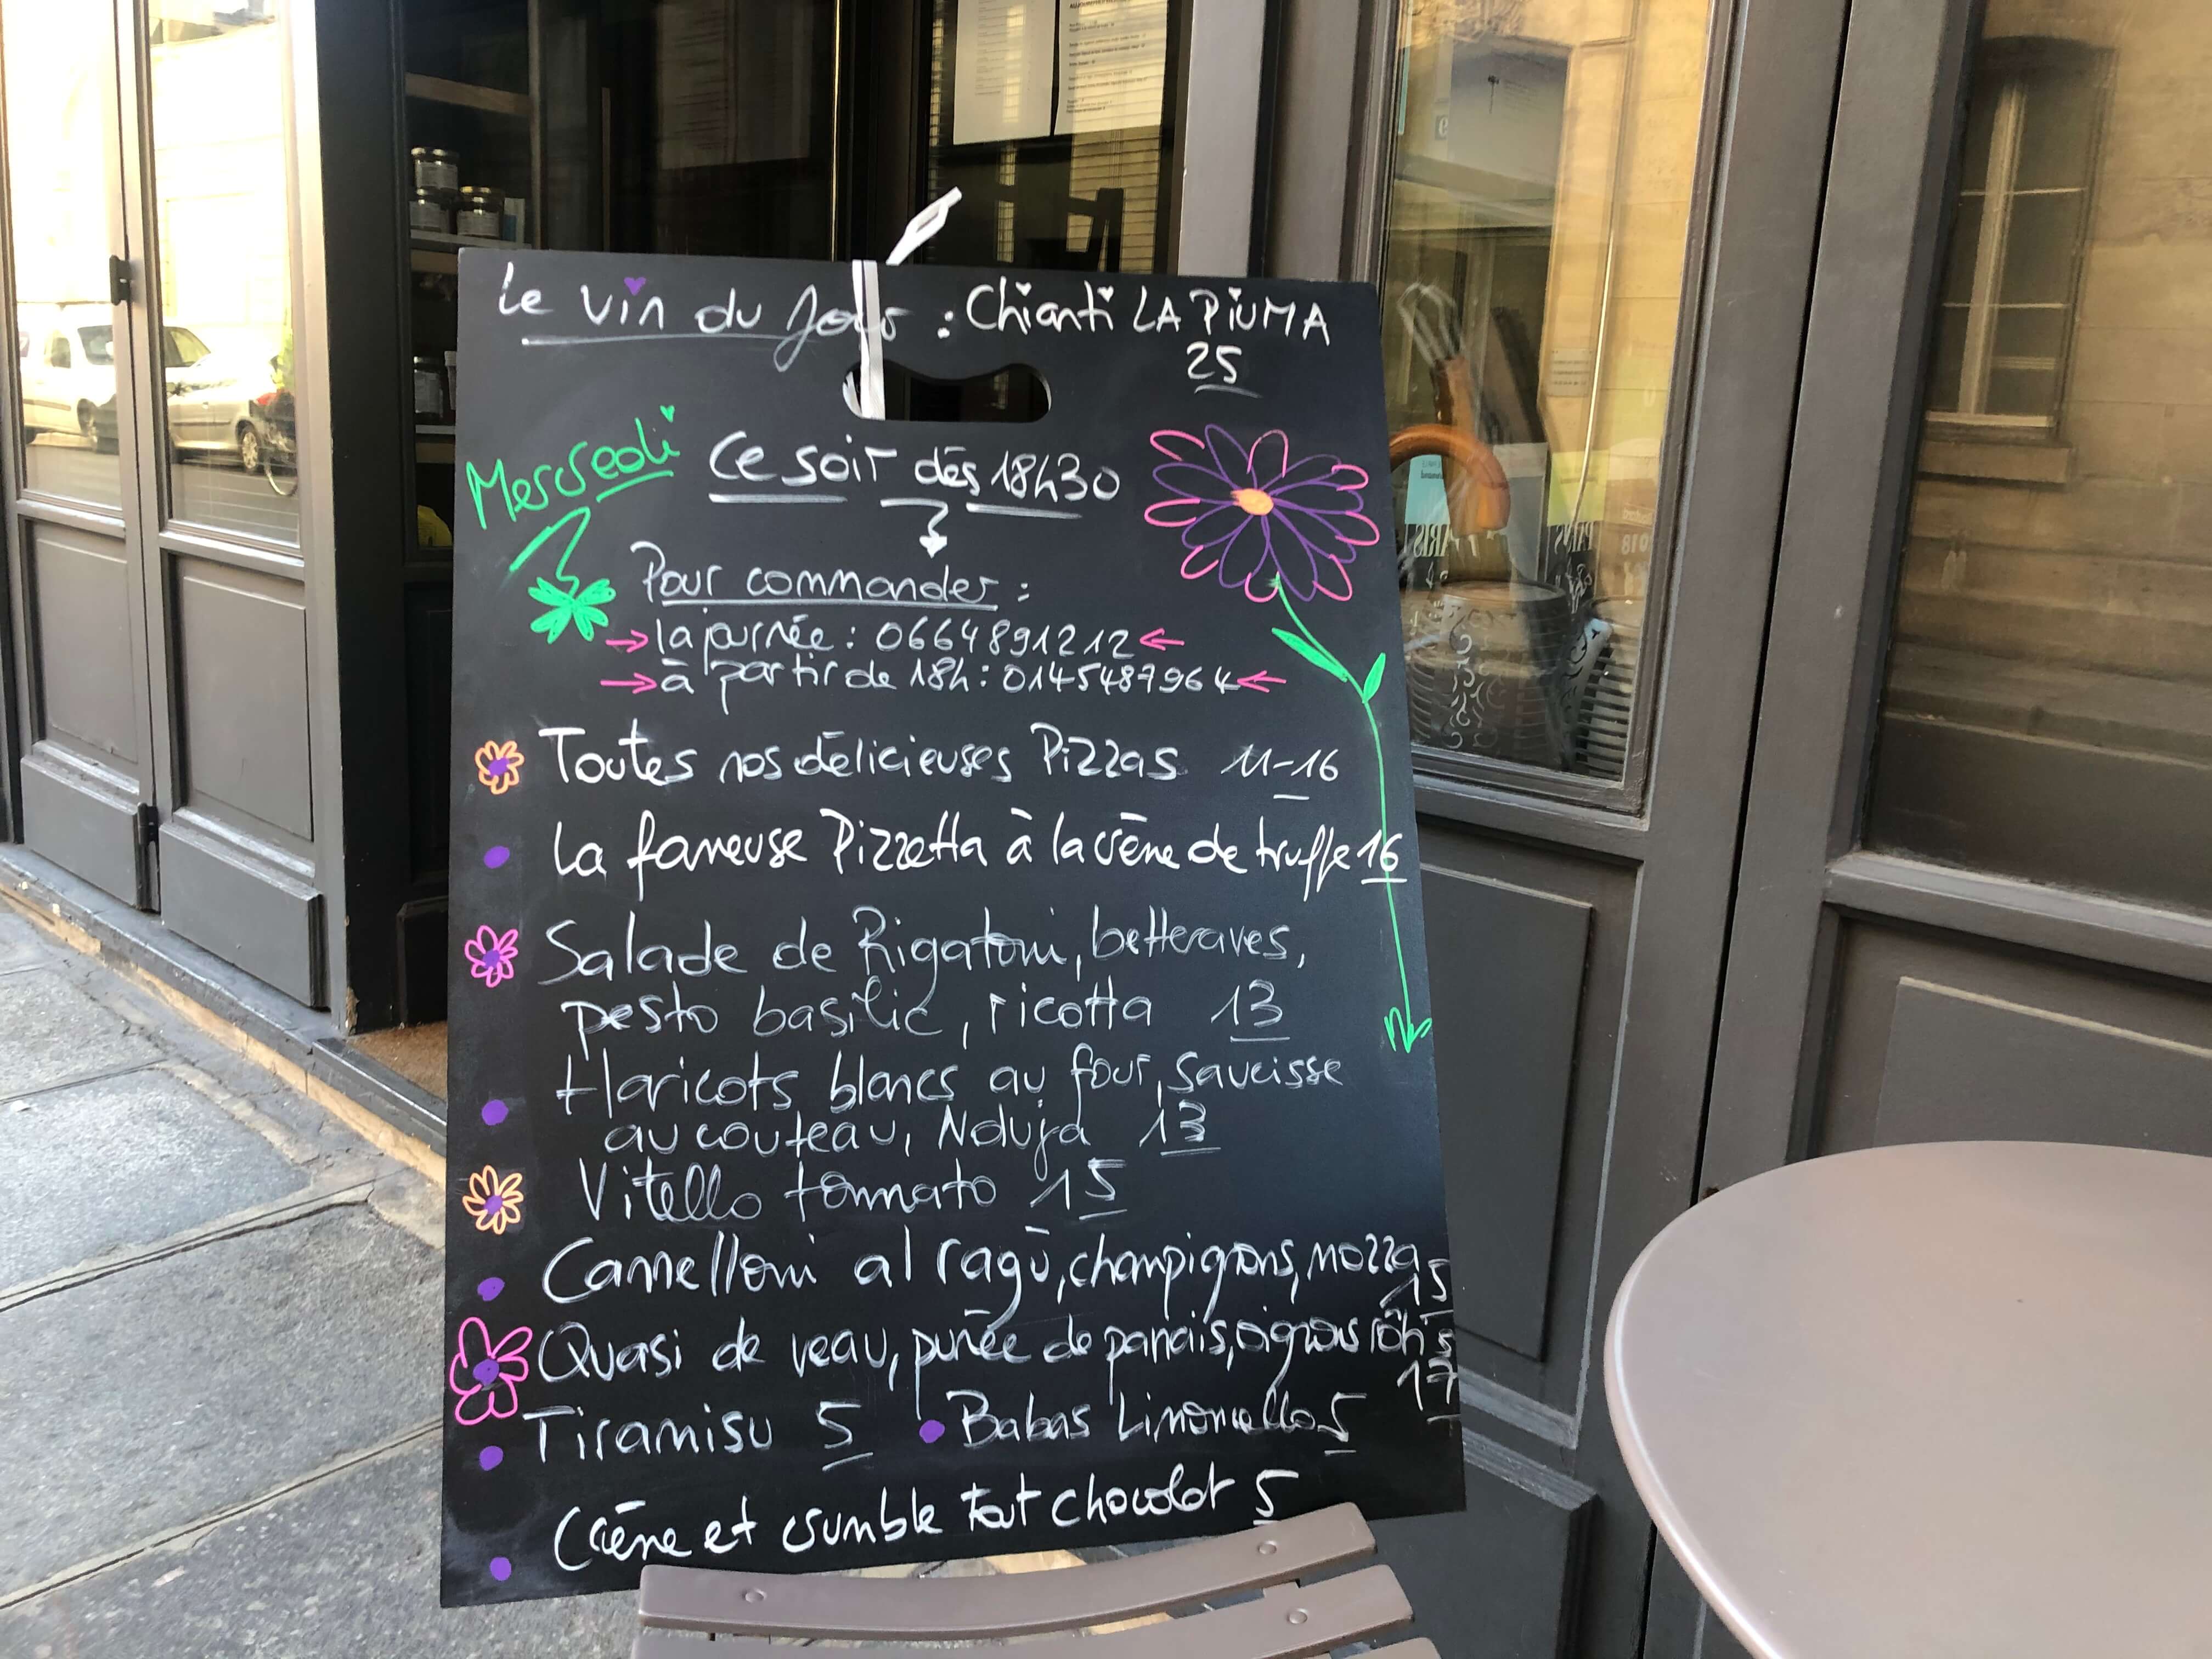 Le vin du Jour : Chianti LA PIUMA
25
Mercredi
Ce soir dès 18h30
Pour commander :
la journée : 0664891212
à partir de 18h : 0145487964
Toutes nos délicieuses Pizzas 11-16
La fameuse Pizzetta à la crème de truffe 16
Salade de Rigatoni, betteraves,
pesto basilic, ricotta 13
Haricots blancs au four, saucisse
au couteau, Nduja 13
Vitello tonnato 15
Cannelloni al ragù, champignons, mozza
15
Quasi de veau, purée de panais, oignons rôtis
17
Tiramisu 5 Babas Limoncello 5
Crème et crumble tout chocolat 5